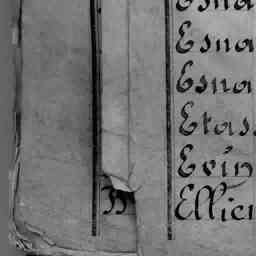 Esna
Esna
Esna
Etas
Evin
Ellier